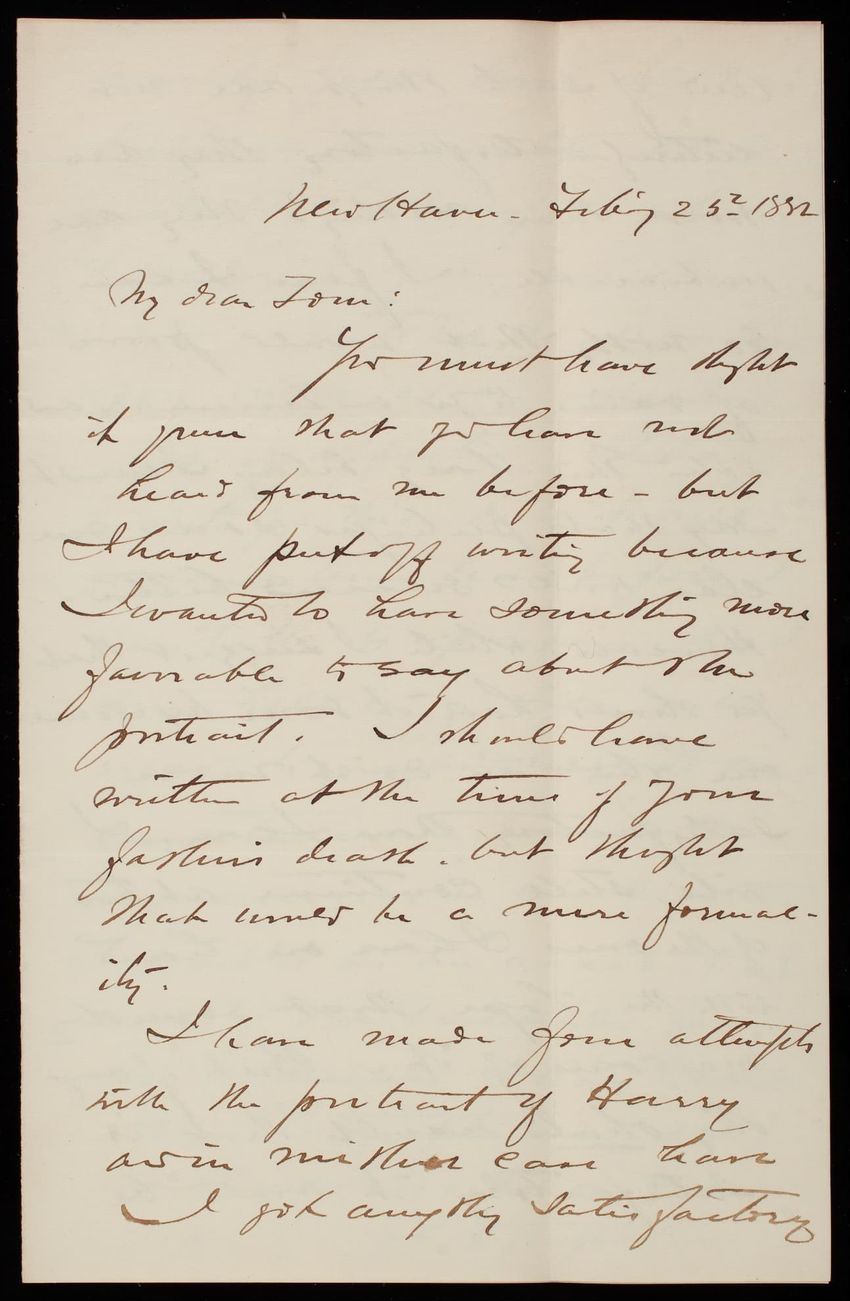 New Haven - Feb'y 25th 1882
My dear Tom:
You must have thought
it queer that you have not
heard from me before - but
I have put off writing because
I wanted to have something more
favorable to say about the
portrait. I should have
written at the time of your
father's death. but thought
that would be a mere formal-
ity.
I have made four attempts
with the portrait of Harry
and in neither case have
I got anything satisfactory